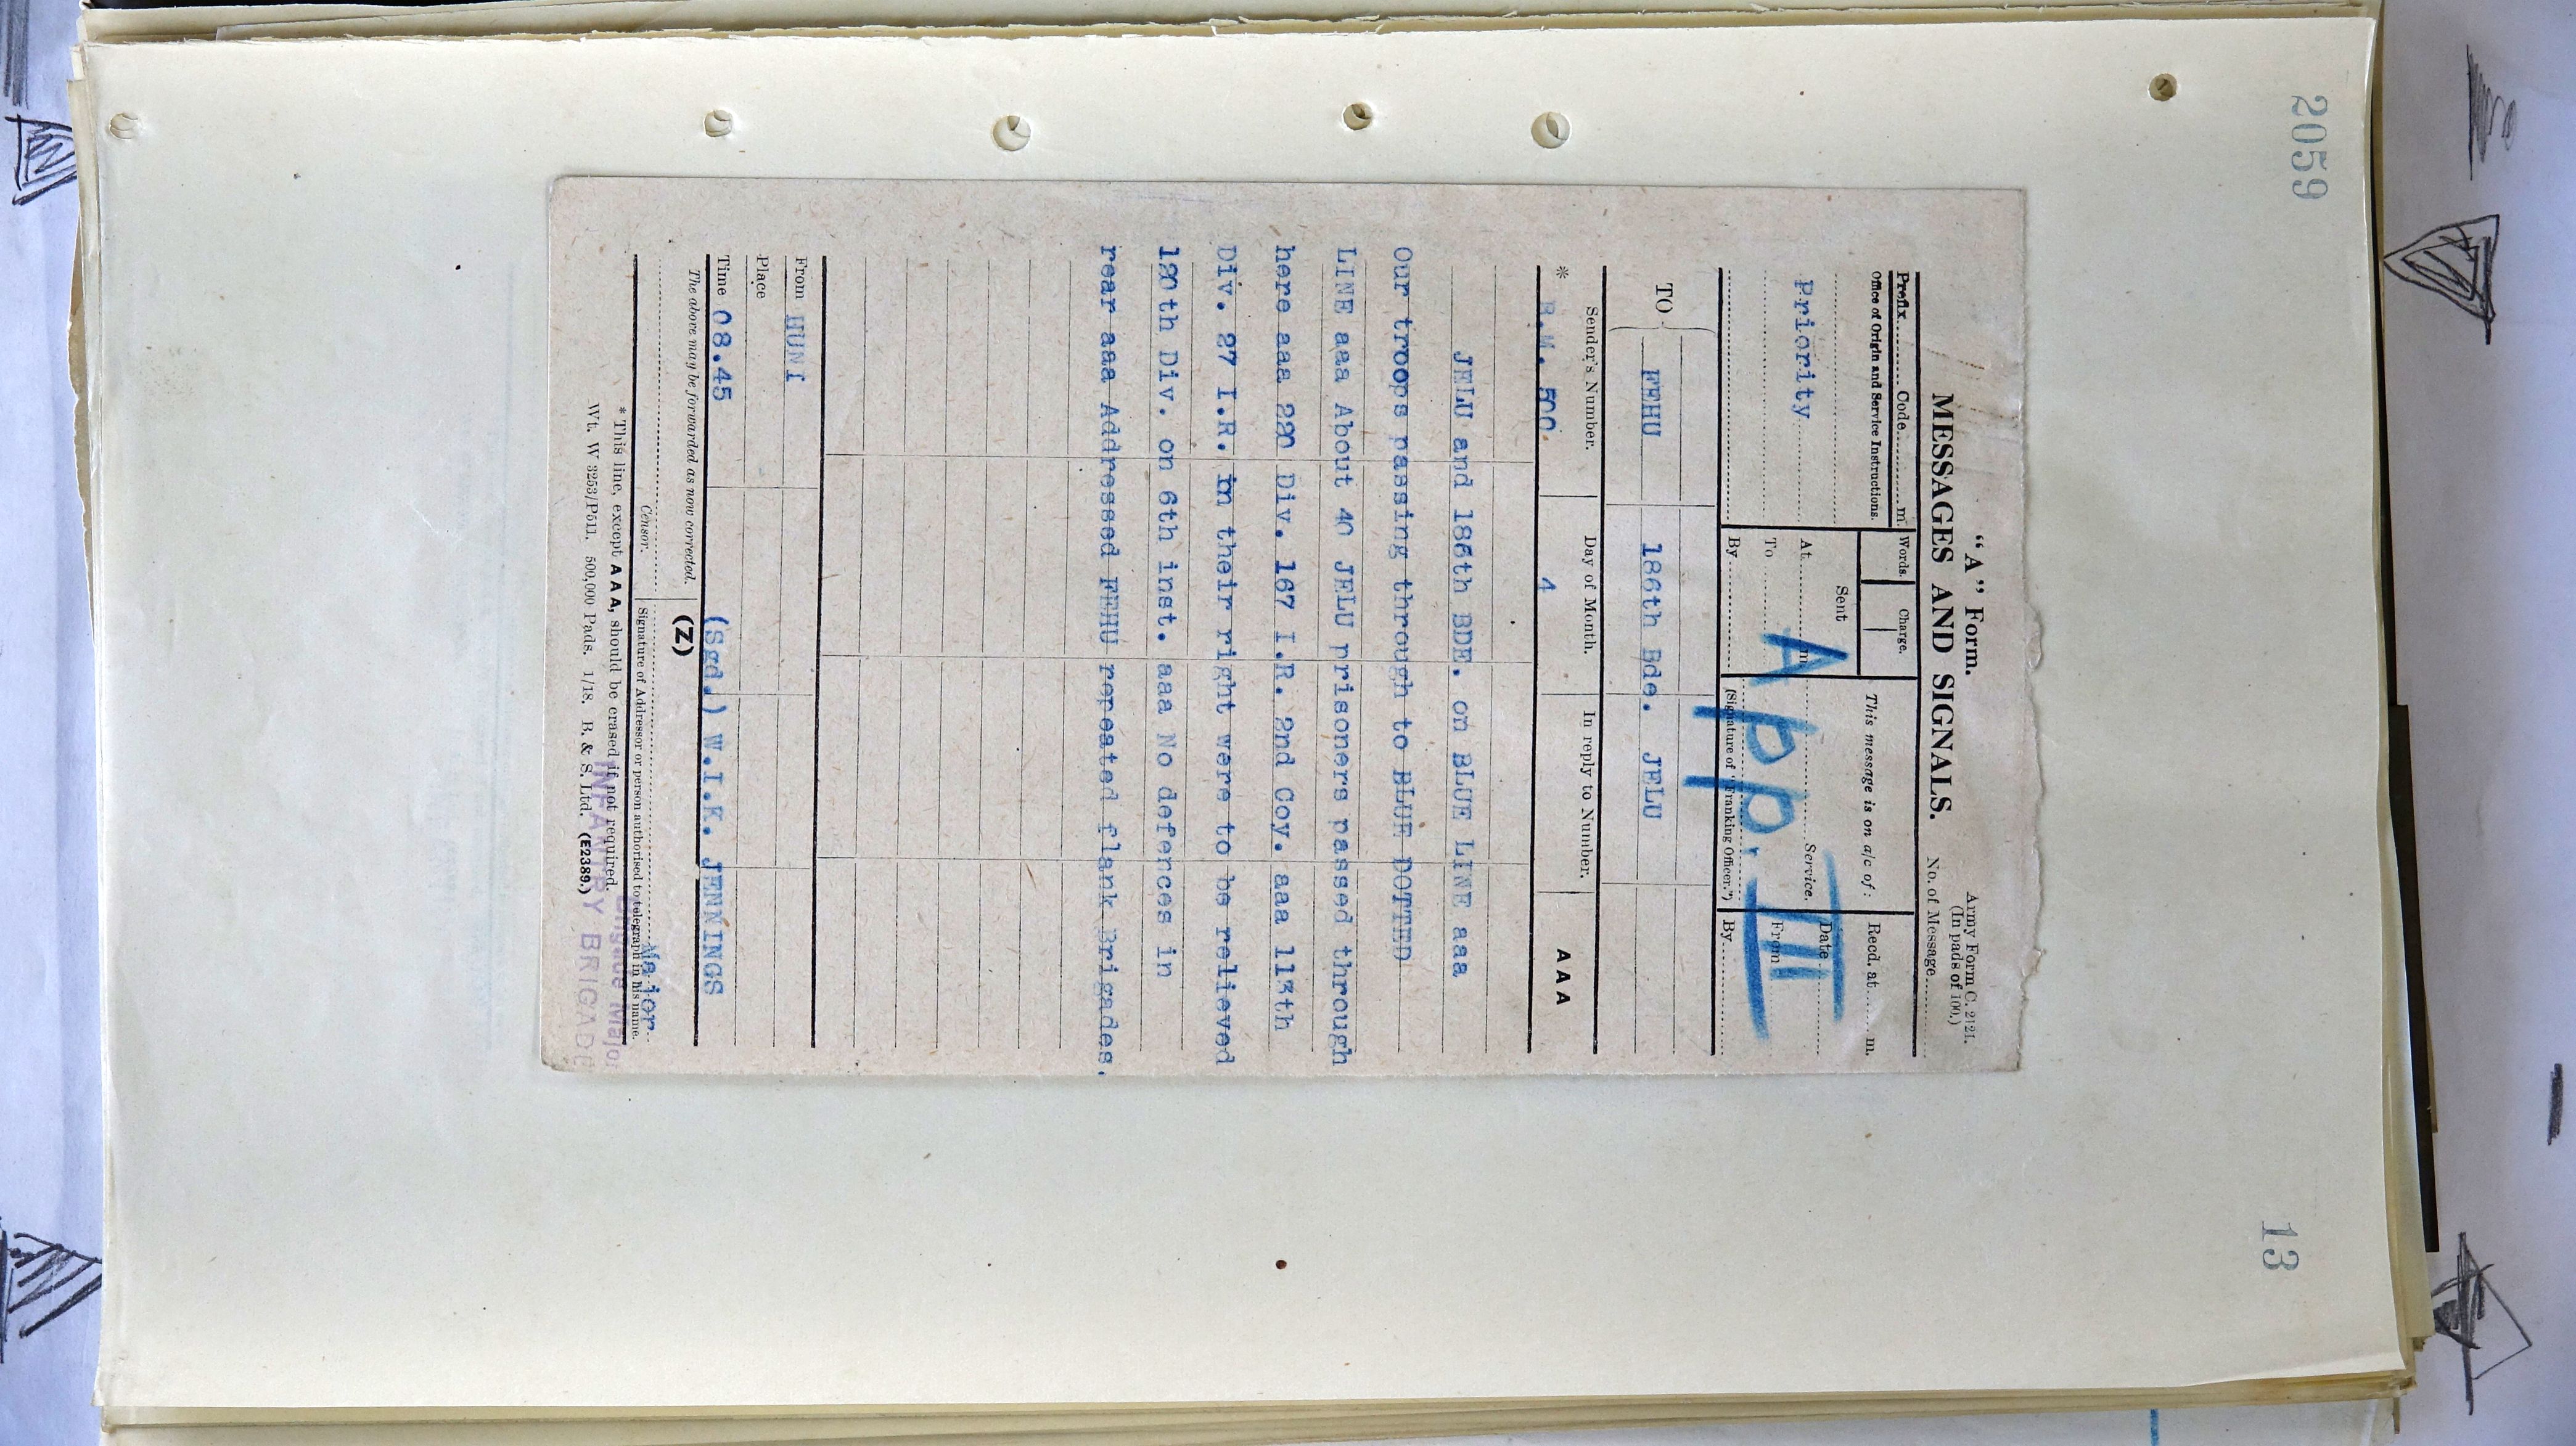 2059
13
"A" Form.
Army Form C. 2121.
(In pads of 100.)
MESSAGES AND SIGNALS.
No. of Message
Prefix Code m.
Words.
Charge.
This message is on a/c of :
Recd. at m.
Office of Origin and Service Instructions.
Sent
Service.
Date
Priority
At m.
From
To
By
(Signature of "Franking Officer.")
By
App. III
TO
FEHU
186th Bde.
JELU
Sender's Number.
Day of Month.
In reply to Number.
A A A
* B.M. 500.
4
JELU and 186th BDE. on BLUE LINE aaa
Our troops passing through to BLUE DOTTED
LINE aaa About 40 JELU prisoners passed through
here aaa 220 Div. 167 I.R. 2nd Coy. aaa 113th
Div. 27 I.R. in their right were to be relieved
190th Div. on 6th inst. aaa No defences in
rear aaa Addressed FEHU repeated flank Brigades.
From HUNI
Place
Time 08.45
(Sgd.) W.I.K. JENNINGS
The above may be forwarded as now corrected.
(Z)
Major
Censor.
Signature of Addressor or person authorised to telegraph in his name.
Brigade Major
* This line, except A A A, should be erased if not required.
INFANTRY BRIGADE
Wt. W 3253/P511. 500,000 Pads. 1/18. B. & S. Ltd. (E2389.)